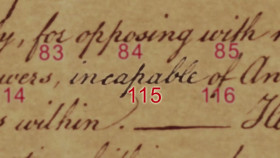 for opposing with
83 84 85
incapable of An
14 115 116
within.